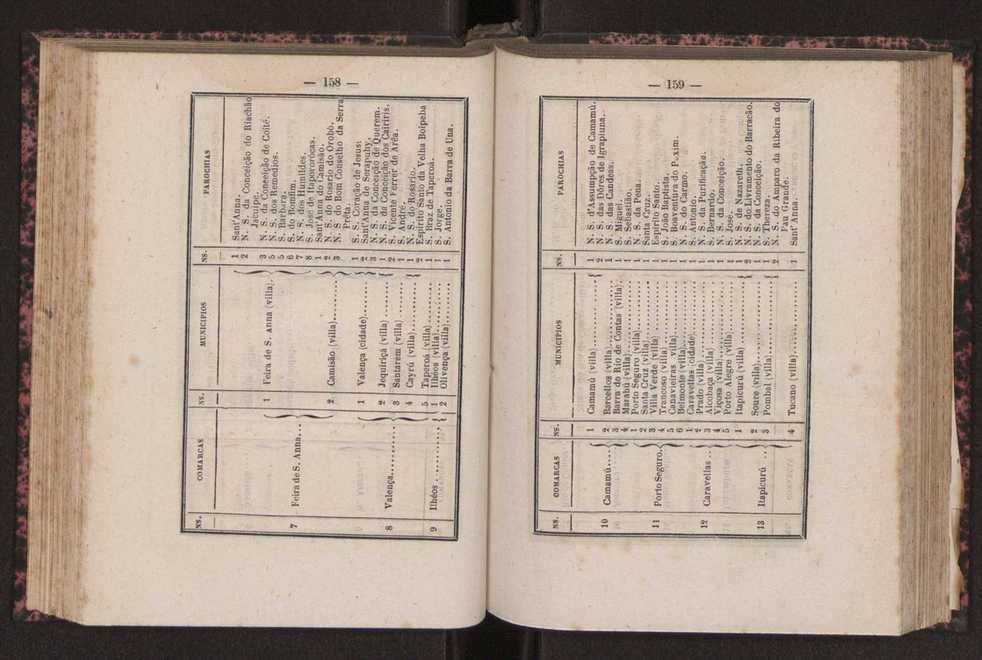 — 158 —
NS. COMARCAS NS. MUNICIPIOS NS. PAROCHIAS
1 Sant'Anna.
2 N. S. da Conceição do Riachão
Jacuipe.
7 Feira de S. Anna... 1 Feira de S. Anna (villa). 3 N. S. da Conceição de Coité.
5 N. S. dos Remedios.
5 S. Barbara.
6 S. do Bomfim.
7 N. S. dos Humildes.
8 S. José de Itapororócas.
2 Camisão (villa)......... 1 Sant'Anna do Camisão.
2 N. S. do Rosario do Orobó.
3 N. S. do Bom Conselho da Serra
Preta.
1 Valença (cidade)........ 1 S. S. Coração de Jesus.
2 Sant'Anna de Serapuhy.
3 N. S. da Conceição de Querem.
2 Jequiriçá (villa)....... 1 N. S. da Conceição dos Cairiris.
8 Valença......... 2 S. Vicente Ferrer de Aréa.
3 Santarem (villa)....... 1 S. André.
4 Cayrú (villa).......... 1 N. S. do Rosario.
2 Espirito Santo da Velha Boipeba
5 Taperoá (villa)........ 1 S. Braz de Taperoá.
9 Ilhéos......... 1 Ilhéos (villa)......... 1 S. Jorge.
2 Olivença (villa)....... 1 S. Antonio da Barra de Una.
— 159 —
NS. COMARCAS NS. MUNICIPIOS NS. PAROCHIAS
1 Camamú (villa)......... 1 N. S. d'Assumpção de Camamú.
2 N. S. das Dôres de Igrapiuna.
10 Camamú..... 2 Barcellos (villa)....... 1 N. S. das Candeas.
3 Barra do Rio de Contas (villa). 1 S. Miguel.
4 Marahú (villa)......... 1 S. Sebastião.
1 Porto Seguro (villa)... 1 N. S. da Pena.
2 Santa Cruz (villa)..... 1 Santa Cruz.
11 Porto Seguro. 3 Villa Verde (villa).... 1 Espirito Santo.
4 Trancoso (villa)....... 1 S. João Baptista.
5 Canavieiras (villa).... 1 S. Boaventura do Poxim.
6 Belmonte (villa)....... 1 N. S. do Carmo.
1 Caravellas (cidade).... 1 S. Antonio.
2 Prado (villa).......... 1 N. S. da Purificação.
12 Caravellas... 3 Alcobaça (villa)....... 1 S. Bernardo.
4 Viçosa (villa)......... 1 N. S. da Conceição.
5 Porto Alegre (villa)... 1 S. José.
1 Itapicurú (villa)...... 1 N. S. de Nazareth.
2 N. S. do Livramento do Barracão.
13 Itapicurú ... 2 Soure (villa).......... 1 N. S. da Conceição.
3 Pombal (villa)......... 1 S. Thereza.
2 N. S. do Amparo da Ribeira do
Páu Grande.
4 Tucano (villa)......... 1 Sant'Anna.